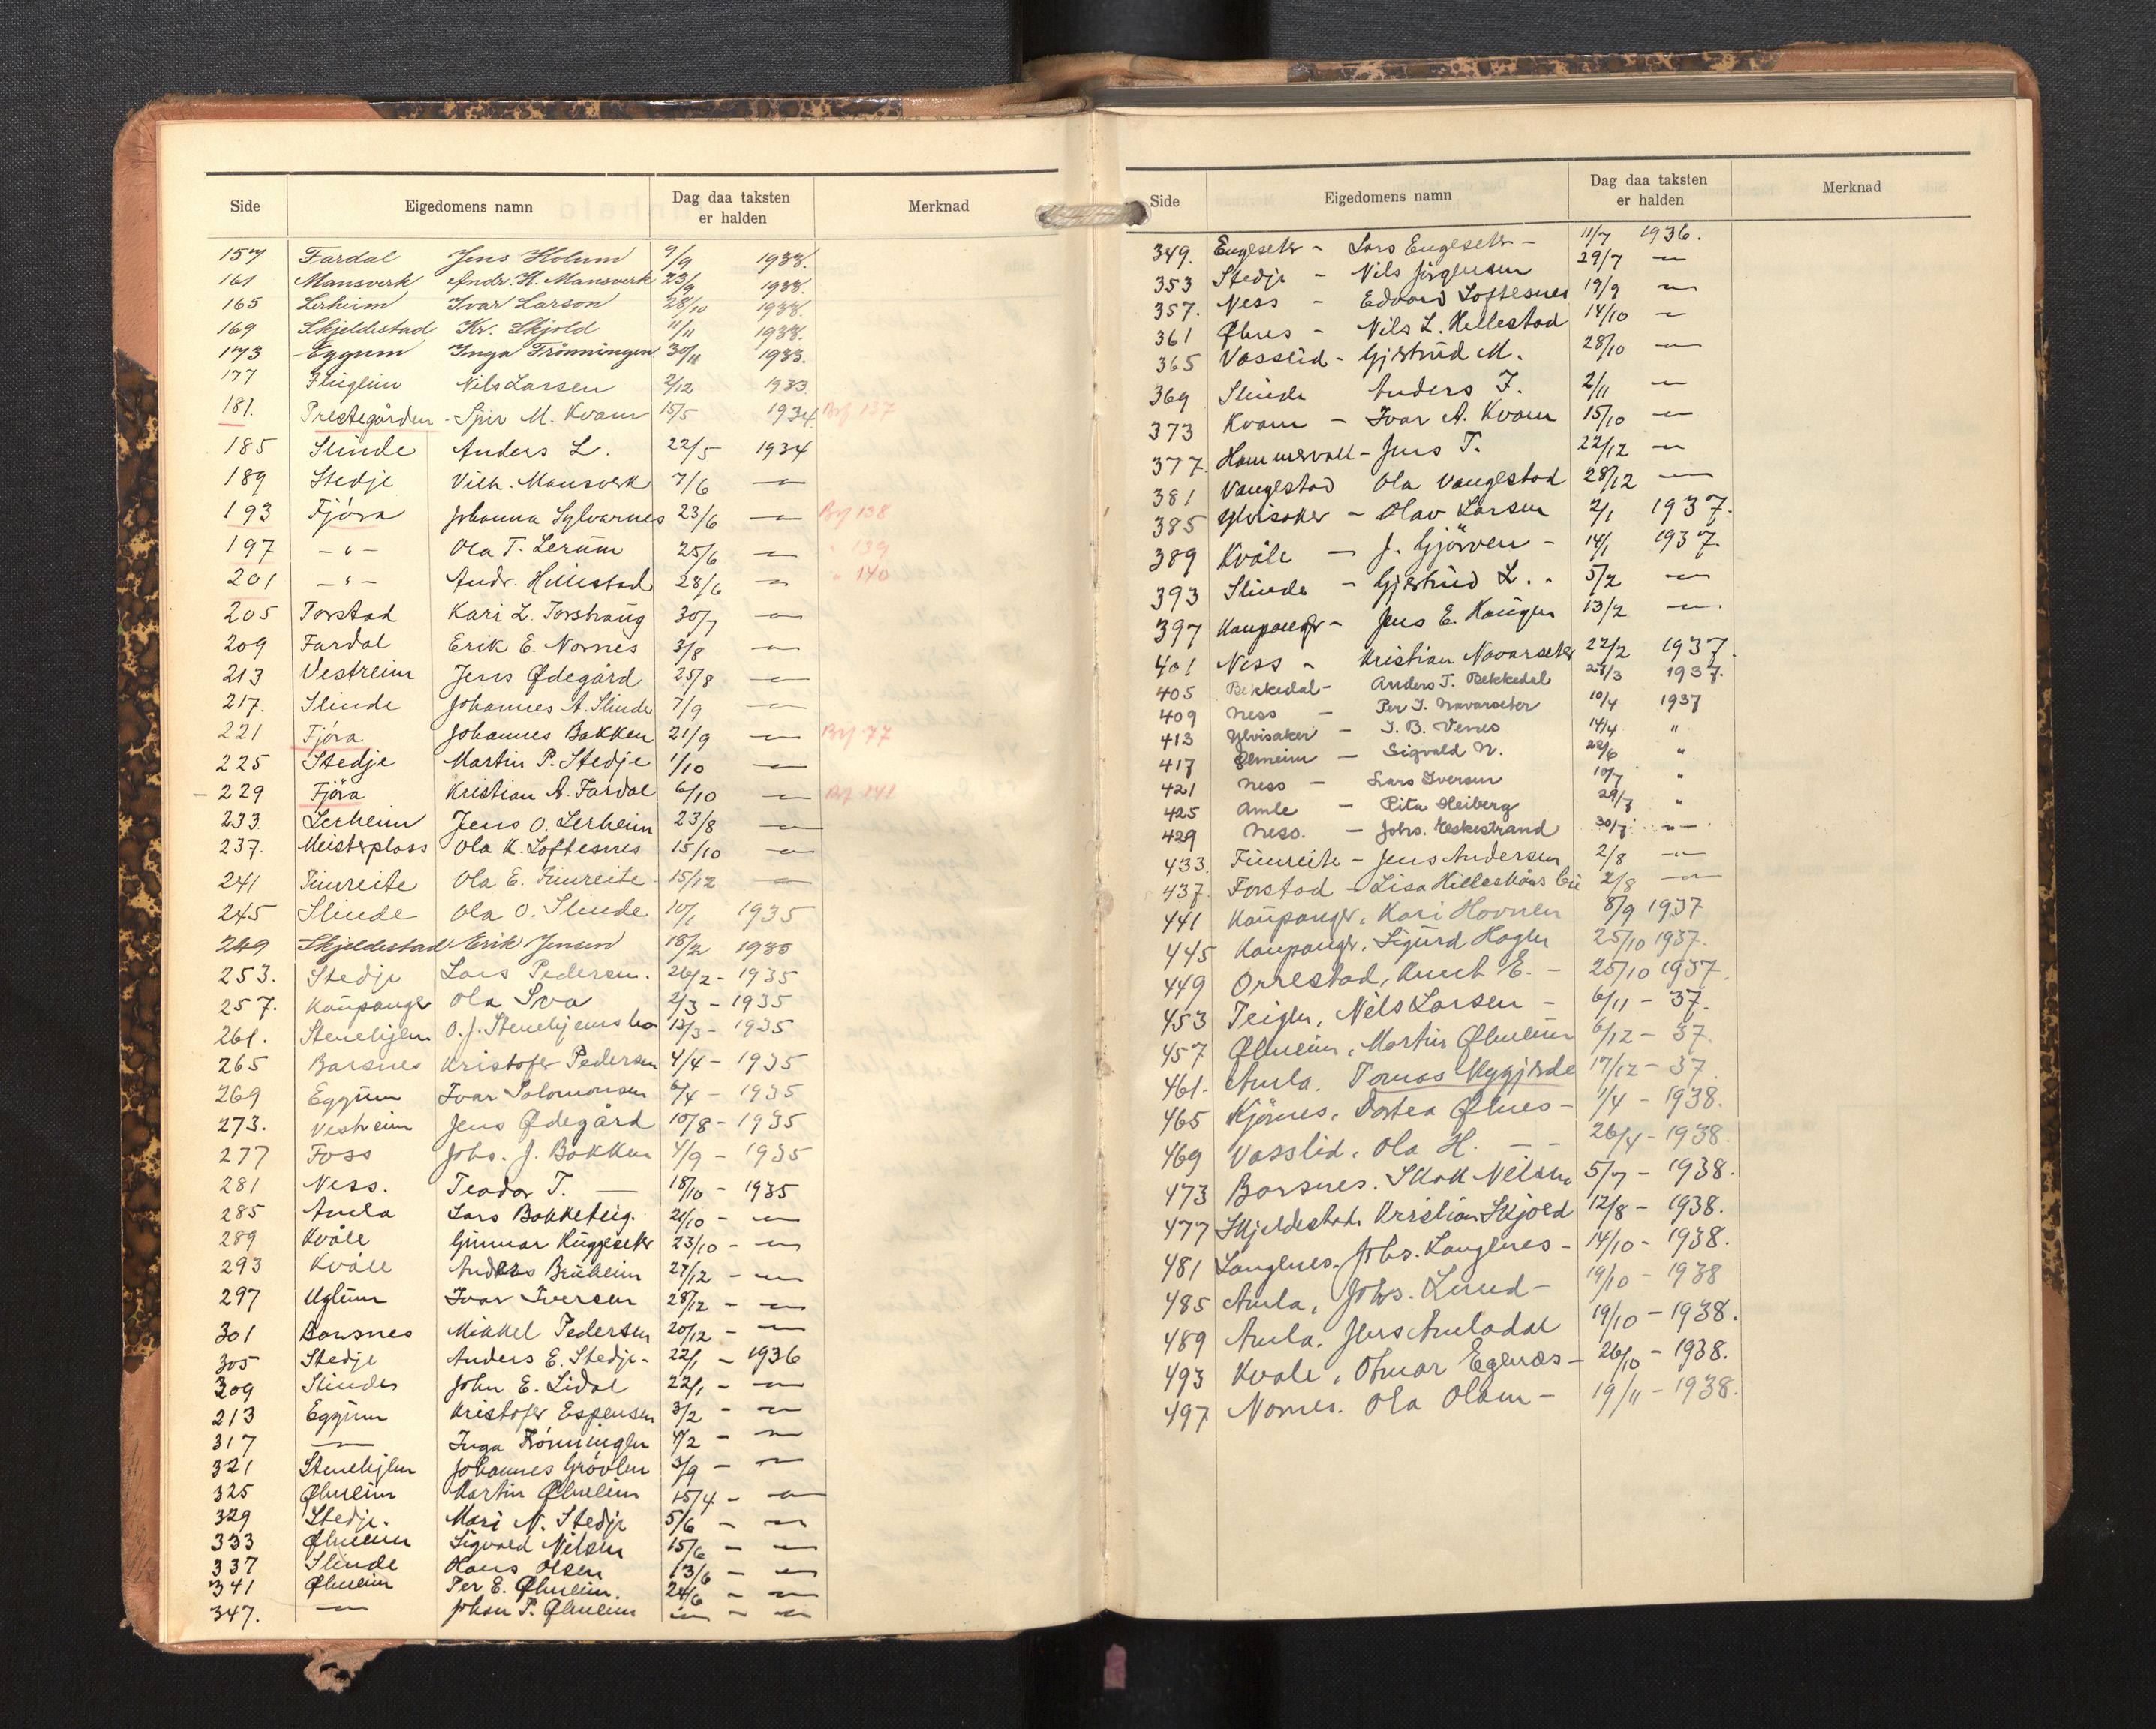 Side Eigedomens namn Dag daa taksten er halden Merknad
157 Fardal Jens Holum 9/9 1933.
161 Mansverk Andr. H. Mansverk 23/9 1933.
165 Lerheim Ivar Larson 28/10 1933.
169 Skjeldestad Kr. Skjold 11/11 1933.
173 Eggum Inga Frönningen 30/11 1933.
177 Nils Larsen 2/12 1933
181. Prestegården - M. Kvam 15/5 1934 Brf 137
185 Slinde Anders L. 22/5 1934
189 Stedje Vilh. Mansverk 7/6 —"—
193 Fjöra Johanna Sylvarnes 23/6 —"— Brf 138
197 —"— Ola T. Lerum 25/6 —"— " 139
201 —"— Andr. Hillestad 28/6 —"— " 140
205 Torstad Kari L. Torshaug 30/7 —"—
209 Fardal Erik E. Nornes 3/8 —"—
213 Vestreim Jens Ødegård 25/8 —"—
217. Slinde Johannes A. Slinde 7/9 —"—
221 Fjöra Johannes Bakken 21/9 —"— Brf 77
225 Stedje Martin P. Stedje 1/10 —"—
229 Fjöra Kristian A. Fardal 6/10 —"— Brf 141
233. Lerheim Jens O. Lerheim 23/8 —"—
237. Meisterplass Ola K. Loftesnes 15/10 —"—
241 Fimreite Ola E. Fimreite 15/12 —"—
245 Slinde Ola O. Slinde 10/1 1935
249 Skjeldestad Erik Jensen 18/2 1935
253. Stedje Lars Pedersen. 26/2 - 1935
257. Kaupanger Ola 2/3 - 1935
261. Stenehjem O. J. Stenehjems bo 12/3 - 1935
265 Barsnes Kristofer Pedersen 4/4 - 1935
269 Eggum Ivar Salomonsen 6/4 - 1935
273. Vestreim Jens Ødegård 10/8 - 1935
277 Foss Johs. J. Bakken 4/9 - 1935
281 Ness. Teodor T. — 18/10 - 1935
285 Amla Lars Bakketeig. 21/10 - —"—
289 Kvåle Gunnar Ruggeseter 23/10 - —"—
293 Kvåle Anders Bruheim 27/12 - —"—
297 Uglum Ivar Iversen 28/12 - —"—
301 Barsnes Mikkel Pedersen 20/12 - —"—
305 Stedje Anders E. Stedje - 22/1 - 1936
309 Slinde John E. Lidal 22/1 - —"—
213 Eggum Kristofer Espensen 3/2 - —"—
317 —"— Inga Frönningen 4/2 - —"—
321 Stenehjem Johannes Grövlen 3/9 - —"—
325 Ølmheim Martin Ølmheim 15/4 - —"—
329 Stedje. Mari N. Stedje 5/6 - —"—
333 Ølmheim Sigvald Nilsen 15/6 - —"—
337 Slinde Hans Olsen 13/6 - —"—
341 Ølmheim Per E. Ølmheim. 24/6 - —"—
347. —"— Johan P. Ølmheim —"— - —"—
Side Eigedomens namn Dag daa taksten er halden Merknad
349. Engeseter - Lars Engeseter - 11/7 1936.
353 Stedje - Nils Jörgensen 29/7 —"—
357. Ness - Edvard Loftesnes 19/9 —"—
361 Ølnes - Nils L. Hillestad 14/10 —"—
365 Vasslid - Gjertrud M. 28/10 —"—
369 Slinde Anders J. 2/11 —"—
373 Kvam - Ivar A. Kvam 15/10 —"—
377. Hammervoll - Jens T. 22/12 —"—
381 Vangestad Ola Vangestad 28/12 —"—
385 Ylvisaker - Olav Larsen 2/1 1937.
389 Kvåle - J. Gjörven - 14/1 1937.
393 Slinde - Gjertrud L. - 5/2 —"—
397 Kaupanger - Jens E. Haugen 13/2 —"—
401 Ness - Kristian Navarseter 22/2 1937.
405 Bekkedal - Anders T. Bekkedal 28/3 1937.
409 Ness - Per I. Navarseter 10/4 1937
413 Ylvisaker - I. B. Venes 14/4 "
417 Ølmheim - Sigvald N. 28/6 "
421 Ness - Lars Iversen 10/7 "
425 Amle - Rita Heiberg 29/7 "
429 Ness. - Johs. Eskestrand 30/7. —"—
433. Fimreite - Jens Andersen 2/8 —"—
437. Torstad - Lisa 2/8 —"—
441 Kaupanger, Kari Hovnen 8/9 1937
445 Kaupanger, Sigurd Hagen 25/10 1937.
449 Orrestad, Knut E. - 25/10 1937.
453 Teigen, Nils Larsen - 6/11 - 37.
457 Ølmheim, Martin Ølmheim 6/12 - 37.
461. Amla. Tomas Nygjerde 17/12 - 37
465 Kjörnes, Dortea Ølnes - 1/4 - 1938.
469 Vasslid, Ola H. — - 26/4 - 1938.
473 Barsnes. Nilsen 5/7 - 1938.
477 Skjeldestad. Kristian Skjold 12/8 - 1938.
481 Langhes. Johs. Langhes - 14/10 - 1938.
485 Amla, Johs. Lund - 19/10 - 1938
489 Amla. Jens Amladal 19/10 - 1938.
493 Kvale, Otmar Egenæs - 26/10 - 1938.
497 Nornes. Ola Olsen - 19/11 - 1938.